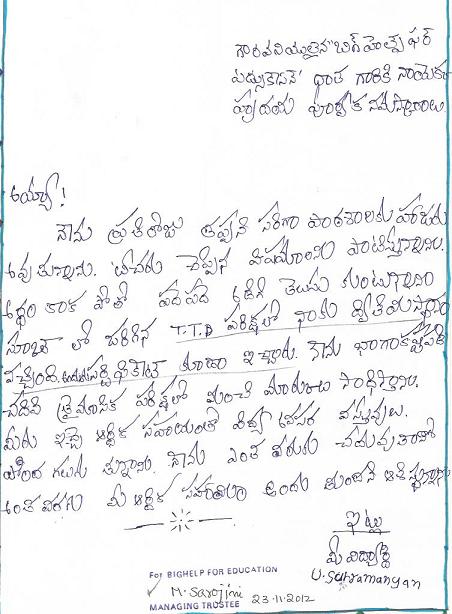 గౌరవనీయులైన "బిగ్ హెల్ప్ ఫర్
ఎడ్యుకేషన్" దాత గారికి నాయొక్క
హృదయ పూర్వక నమస్కారాలు
అయ్యా!
నేను ప్రతిరోజు తప్పక సరిగా పాఠశాలకు హాజరు
అవుతున్నాను. టీచరు చెప్పిన విషయాలని పాటిస్తున్నాను.
అర్థం కాక పోతే పదే పదే అడిగి తెలుసు కుంటున్నాను
లో జరిగిన T.T.D పరీక్షలో నాకు ద్వితీయస్థానం
వచ్చింది. అందుకు సర్టిఫికెట్ కూడా ఇచ్చారు. నేను బాగా కష్టపడి
చదివి త్రైమాసిక పరీక్షలో మంచి మార్కులు సాధిస్తాను.
మీరు ఇచ్చే ఆర్థిక సహాయంతో విద్యా వస్తువులు
పొంద గలుగు తున్నాను. నేను ఎంత వరకు చదువుతానో
అంత వరకు మీ ఆర్థిక సహాయం అందు తుందని ఆశిస్తున్నాను
ఇట్లు
మీ విద్యార్థి
U. Subramanyan
For BIGHELP FOR EDUCATION
M. Sarojini
MANAGING TRUSTEE 23-11-2012